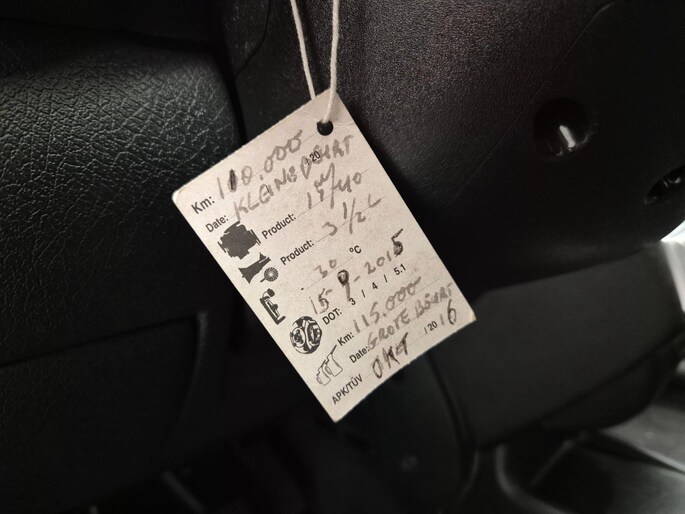 Km: 100.000
Date: KLEINE BEURT /20
Product: 15W/40
Product: 3 1/2 L
30 °C
15-9-2015
DOT: 3 / 4 / 5.1
Km: 115.000
Date: GROTE BEURT
APK/TÜV OKT /20 16